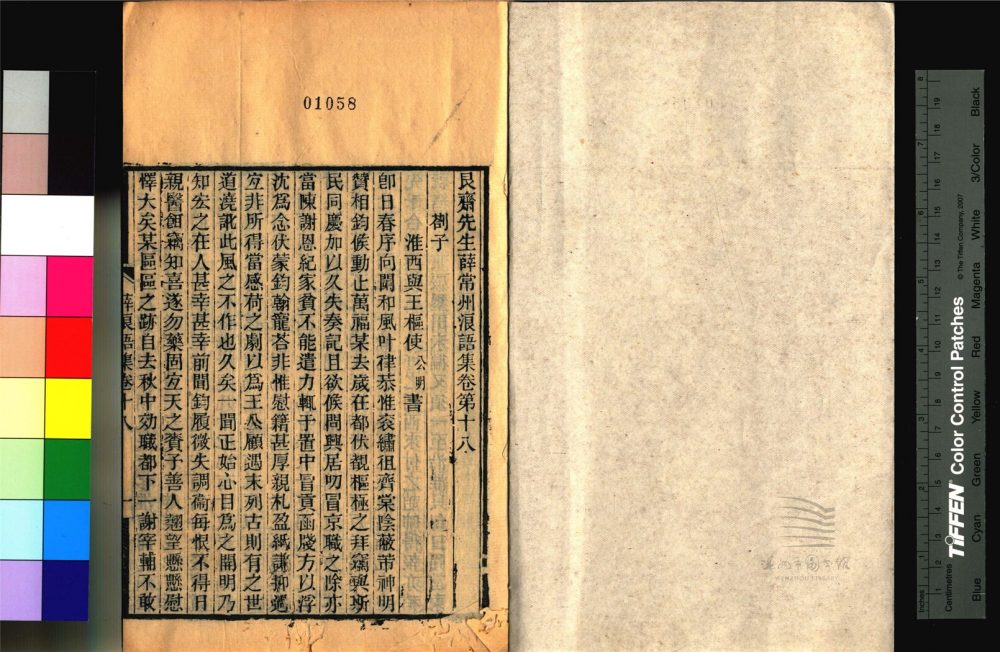 01058
艮齋先生薛常州浪語集卷第十八
劄子
淮西與王樞使公明書
卽日春序向闌和風叶律恭惟衮繡徂齊棠陰蔽芾神明
贊相鈞候動止萬福某去歲在都伏覩樞極之拜竊與斯
民同慶加以久失奏記且欲候問興居叨冒京職之除亦
當陳謝恩紀家貧不能遣力輒于置中冒貢函牋方以浮
沈爲念伏蒙鈞翰寵荅非惟慰籍甚厚親札盈紙謙抑過
宐非所得當感荷之劇以爲王公顧遇末列古則有之世
道澆訛此風之不作也久矣一聞正始心目爲之開明乃
知宏之在人甚幸甚幸前聞鈞履微失調衞每恨不得日
親醫餌竊知喜遂勿藥固宐天之賚予善人翹望懸懸慰
懌大矣某區區之跡自去秋中効職都下一謝宰輔不敢
薛浪語集卷十八
一
溫州市圖書館
WENZHOU LIBRARY
TIFFEN Color Control Patches
© The Tiffen Company, 2007
Inches
Centimetres
Blue
Cyan
Green
Yellow
Red
Magenta
White
3/Color
Black